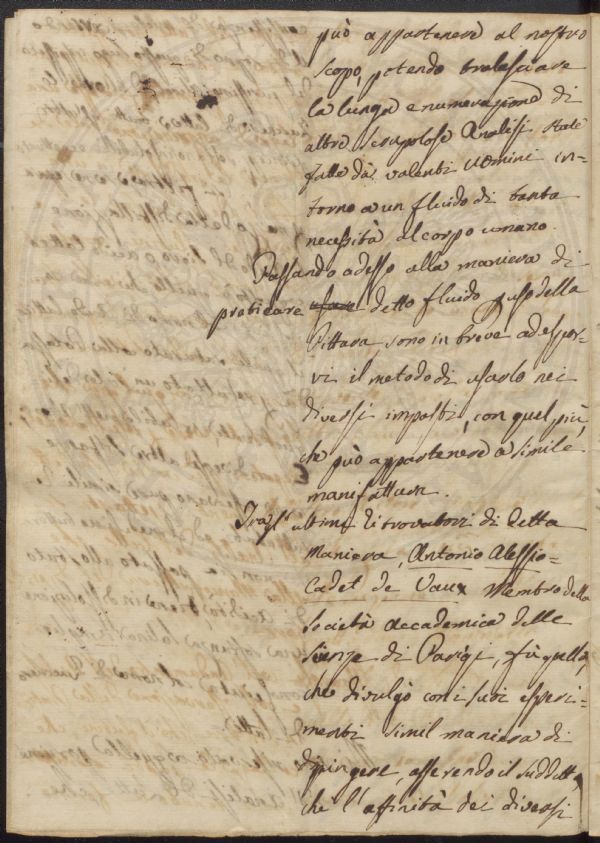 può appartenere al nostro
scopo, potendo tralasciare
la lunga enumerazione di
altre scrupolose Analisi state
fatte da valenti Uomini in-
torno a un fluido di tanta
necessità al corpo umano.
Passando adesso alla maniera di
praticare usare detto fluido p uso della
Pittura sono in breve ad espor-
vi il metodo di usarlo nei
diversi impasti, con quel più,
che può appartenere a simile
manifattura.
Tra gl' ultimi ritrovatori di detta
Maniera, Antonio Alessio-
Cadet de Vaux Membro della
Società accademica delle
Sienze di Parigi, fù quello,
che divulgò con i suoi esperi-
menti simil maniera di
dipingere, asserendo il suddetto,
che l'affinità dei diversi